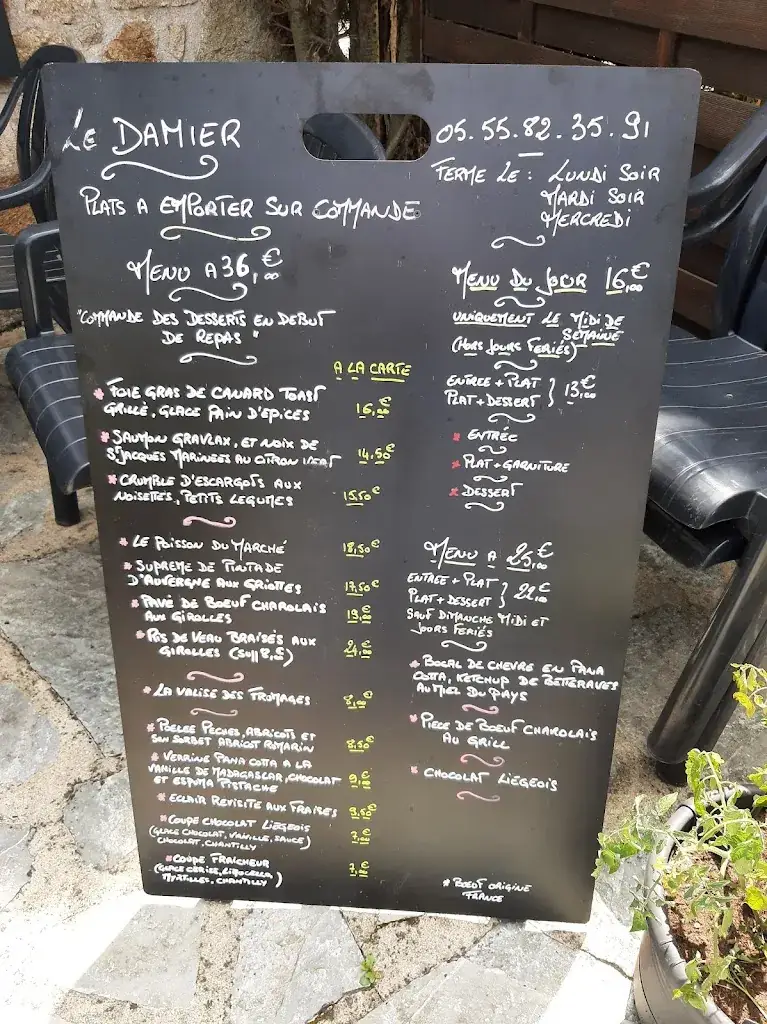 Le DAMIER
PLATS A EMPORTER SUR COMMANDE
MENU A 36,00€
"COMMANDE DES DESSERTS EN DEBUT
DE REPAS"
A LA CARTE
* FOIE GRAS DE CANARD TOAST
GRILLE, GLACE PAIN D'EPICES 16,00€
* SAUMON GRAVLAX, ET NOIX DE
ST JACQUES MARINEES AU CITRON VERT 14,50€
* CRUMBLE D'ESCARGOTS AUX
NOISETTES, PETITS LEGUMES 15,50€
* LE POISSON DU MARCHÉ 18,50€
* SUPREME DE PINTADE
D'AUVERGNE AUX GRIOTTES 17,50€
* PAVE DE BOEUF CHAROLAIS
AUX GIROLLES 19,00€
* RIS DE VEAU BRAISES AUX
GIROLLES (SUPP 8,€) 24,00€
* LA VALISE DES FROMAGES 8,00€
* POELEE PECHES, ABRICOTS ET
SON SORBET ABRICOT ROMARIN 8,50€
* VERRINE PANA COTTA A LA
VANILLE DE MADAGASCAR, CHOCOLAT
ET ESPUMA PISTACHE 9,00€
* ECLAIR REVISITE AUX FRAISES 9,50€
* COUPE CHOCOLAT LIEGEOIS
(GLACE CHOCOLAT, VANILLE, SAUCE
CHOCOLAT, CHANTILLY 7,00€
* COUPE FRAICHEUR
(GLACE CERISE, LIMOCELLO,
MYRTILLES, CHANTILLY) 7,00€
05.55.82.35.91
FERME LE : LUNDI SOIR
MARDI SOIR
MERCREDI
MENU DU JOUR 16,00€
UNIQUEMENT LE MIDI DE
SEMAINE
(HORS JOURS FERIÉS)
ENTREE + PLAT
PLAT + DESSERT } 13,00€
* ENTRÉE
* PLAT + GARNITURE
* DESSERT
MENU A 25,00€
ENTREE + PLAT
PLAT + DESSERT } 22,00€
SAUF DIMANCHE MIDI ET
JOURS FERIÉS
* BOCAL DE CHEVRE EN PANA
COTTA, KETCHUP DE BETTERAVES
AU MIEL DU PAYS
* PIECE DE BOEUF CHAROLAIS
AU GRILL
* CHOCOLAT LIEGEOIS
* BOEUF ORIGINE
FRANCE